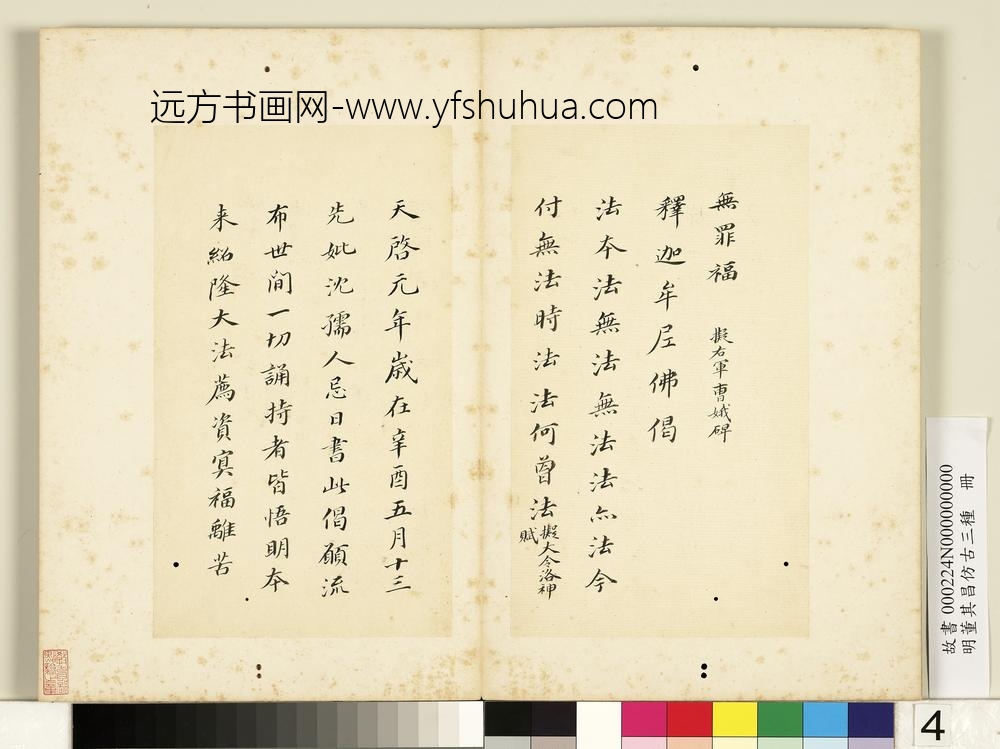 远方书画网-www.yfshuhua.com
無罪福 擬右軍曹娥碑
釋迦牟尼佛偈
法本法無法無法法亦法今
付無法時法法何曾法擬大令洛神
賦
天啓元年歲在辛酉五月十三
先妣沈孺人忌日書此偈願流
布世间一切誦持者皆悟明本
来紹隆大法薦資冥福離苦
故書 000224N000000000
明董其昌仿古三種 冊
4